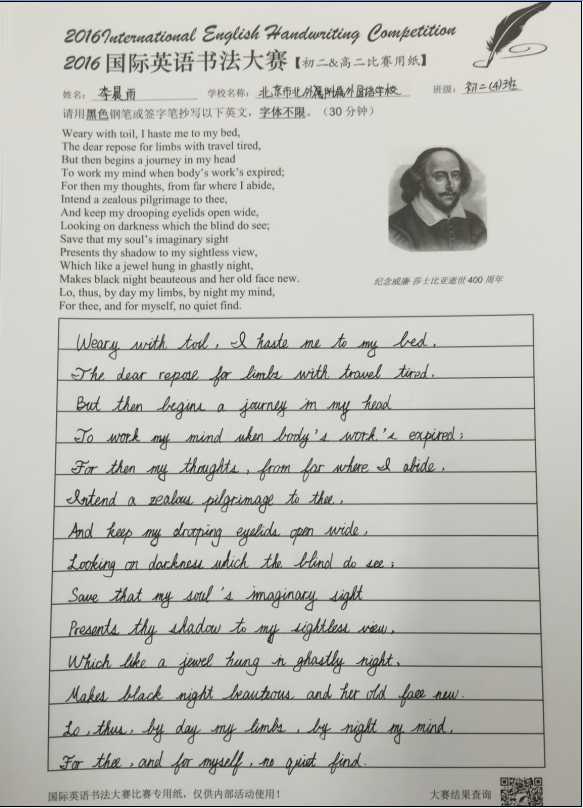 2016International English Handwriting Competition
2016 国际英语书法大赛【初二&高二比赛用纸】
姓名: 李晨雨 学校名称: 北京市北外附属外国语学校 班级: 初二(4)班
请用黑色钢笔或签字笔抄写以下英文，字体不限。（30 分钟）
Weary with toil, I haste me to my bed,
The dear repose for limbs with travel tired,
But then begins a journey in my head
To work my mind when body's work's expired;
For then my thoughts, from far where I abide,
Intend a zealous pilgrimage to thee,
And keep my drooping eyelids open wide,
Looking on darkness which the blind do see;
Save that my soul's imaginary sight
Presents thy shadow to my sightless view,
Which like a jewel hung in ghastly night,
Makes black night beauteous and her old face new.
Lo, thus, by day my limbs, by night my mind,
For thee, and for myself, no quiet find.
纪念威廉·莎士比亚逝世 400 周年
Weary with toil, I haste me to my bed,
The dear repose for limbs with travel tired.
But then begins a journey in my head
To work my mind when body's work's expired;
For then my thoughts, from far where I abide,
Intend a zealous pilgrimage to thee,
And keep my drooping eyelids open wide,
Looking on darkness which the blind do see;
Save that my soul's imaginary sight
Presents thy shadow to my sightless view,
Which like a jewel hung in ghastly night,
Makes black night beauteous and her old face new.
Lo, thus, by day my limbs, by night my mind,
For thee, and for myself, no quiet find.
国际英语书法大赛比赛专用纸，仅供内部活动使用！
大赛结果查询